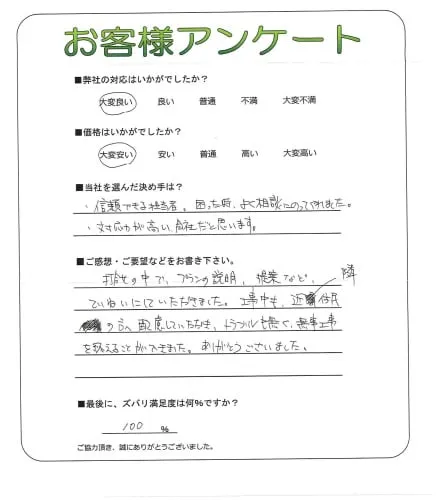 お客様アンケート
■弊社の対応はいかがでしたか?
大変良い 良い 普通 不満 大変不満
■価格はいかがでしたか?
大変安い 安い 普通 高い 大変高い
■当社を選んだ決め手は?
・信頼できる担当者。困った時、よく相談にのってくれました。
・対応力が高い会社だと思います。
■ご感想・ご要望などをお書き下さい。
の中で、プランの説明、提案など、
ていねいにしていただきました。工事中も、近隣住民
の方へ配慮していただき、トラブルも無く、無事工事
を終えることができました。ありがとうございました。
■最後に、ズバリ満足度は何%ですか?
100 %
ご協力頂き、誠にありがとうございました。